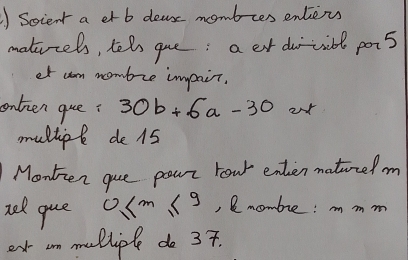 .) Soient a et b deux nombres entiers
naturels, tels que : a est divisible par 5
et un nombre impair.
ontrer que : 30b + 6a - 30 est
multiple de 15
) Montrer que pour tout entier naturel m
tel que 0 ⩽ m ⩽ 9, le nombre : m m m
est un multiple de 37.